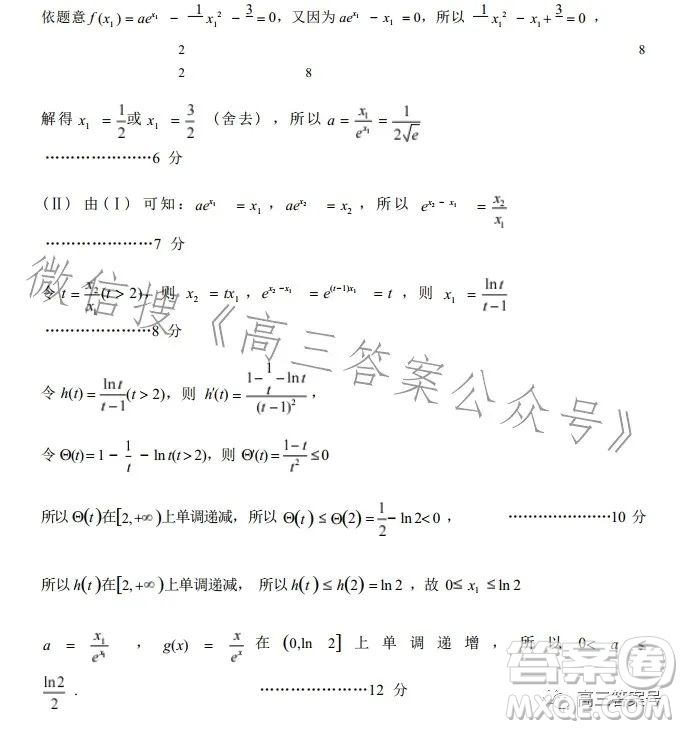 依题意 f(x₁) = ae^{x₁} − 1/2 x₁² − 3/8 = 0，又因为 ae^{x₁} − x₁ = 0，所以 1/2 x₁² − x₁ + 3/8 = 0，
解得 x₁ = 1/2 或 x₁ = 3/2（舍去），所以 a = x₁/e^{x₁} = 1/(2√e)
·····················6 分
(Ⅱ) 由(Ⅰ) 可知：ae^{x₁} = x₁，ae^{x₂} = x₂，所以 e^{x₂−x₁} = x₂/x₁
·····················7 分
令 t = x₂/x₁ (t > 2)，则 x₂ = tx₁，e^{x₂−x₁} = e^{(t−1)x₁} = t，则 x₁ = ln t/(t−1)
·····················8 分
令 h(t) = ln t/(t−1) (t > 2)，则 h′(t) = (1 − 1/t − ln t)/(t−1)²，
令 Θ(t) = 1 − 1/t − ln t(t > 2)，则 Θ′(t) = (1−t)/t² ≤ 0
所以 Θ(t) 在[2,+∞)上单调递减，所以 Θ(t) ≤ Θ(2) = 1/2 − ln 2 < 0，·····················10 分
所以 h(t) 在[2,+∞)上单调递减， 所以 h(t) ≤ h(2) = ln 2，故 0 ≤ x₁ ≤ ln 2
a = x₁/e^{x₁}，g(x) = x/e^x 在 (0,ln 2] 上单调递增，所以 0 < a ≤
ln2/2 . ·····················12 分
微信搜《高三答案公众号》
答案圈
MXQE.COM
高三答案号